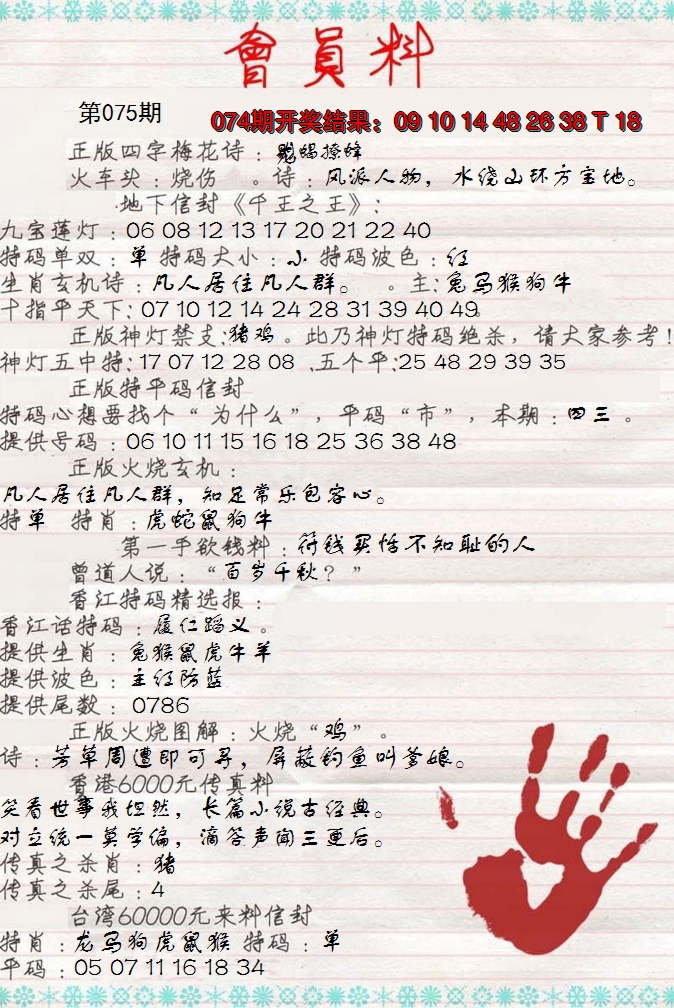 會員料
第075期
074期开奖结果：09 10 14 48 26 38 T 18
正版四字梅花诗：蝎撩蜂
火车头：烧伤 。诗：风派人物，水绕山环方宝地。
地下信封《千王之王》：
九宝莲灯：06 08 12 13 17 20 21 22 40
特码单双：单 特码大小：小 特码波色：红
生肖玄机诗：凡人居住凡人群。 。主：兔马猴狗牛
十指平天下：07 10 12 14 24 28 31 39 40 49
正版神灯禁支：猪鸡。此乃神灯特码绝杀，请大家参考！
神灯五中特：17 07 12 28 08 、五个平：25 48 29 39 35
正版特平码信封
特码心想要找个“为什么”，平码“市”，本期：四三。
提供号码：06 10 11 15 16 18 25 36 38 48
正版火烧玄机：
凡人居住凡人群，知足常乐包容心。
特单 特肖：虎蛇鼠狗牛
第一手欲钱料：符钱买恬不知耻的人
曾道人说：“百岁千秋？”
香江特码精选报：
香江话特码：履仁蹈义。
提供生肖：兔猴鼠虎牛羊
提供波色：主红防蓝
提供尾数：0786
正版火烧图解：火烧“鸡”。
诗：芳草周遭即可寻，屏蔽钓鱼叫爹娘。
香港6000元传真料
笑看世事我坦然，长篇小说古经典。
对立统一莫学偏，滴答声闻三更后。
传真之杀肖：猪
传真之杀尾：4
台湾60000元来料信封
特肖：龙马狗虎鼠猴 特码：单
平码：05 07 11 16 18 34